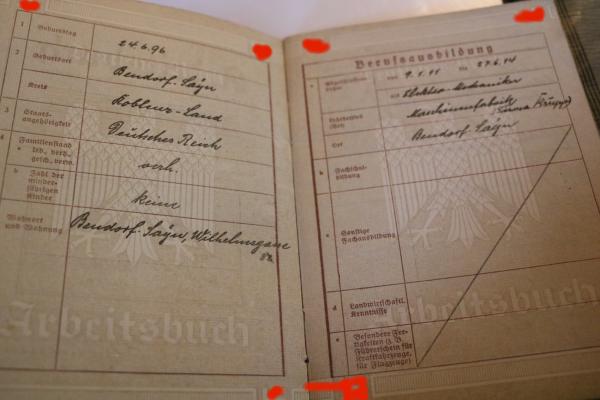 1 Geburtstag
24.6.96
2 Geburtsort
Bendorf-Sayn
Kreis
Koblenz-Land
3 Staats-
angehörigkeit
Deutsches Reich
4 Familienstand
a led., verh.,
gesch., verw.
verh.
b Zahl der
minder-
jährigen
Kinder
keine
Wohnort
und Wohnung
Bendorf-Sayn, Wilhelmsgasse
Arbeitsbuch
Berufsausbildung
von 9.1.11 bis 27.6.14
als Elektro-Mechaniker
Maschinenfabrik
Firma
Ort Bendorf-Sayn
b Fachschul-
bildung
c Sonstige
Fachausbildung
d Landwirtschaftl.
Kenntnisse
e Besondere Fer-
tigkeiten (z. B.
Führerschein für
Kraftfahrzeuge,
für Flugzeuge)
Arbeitsbuch